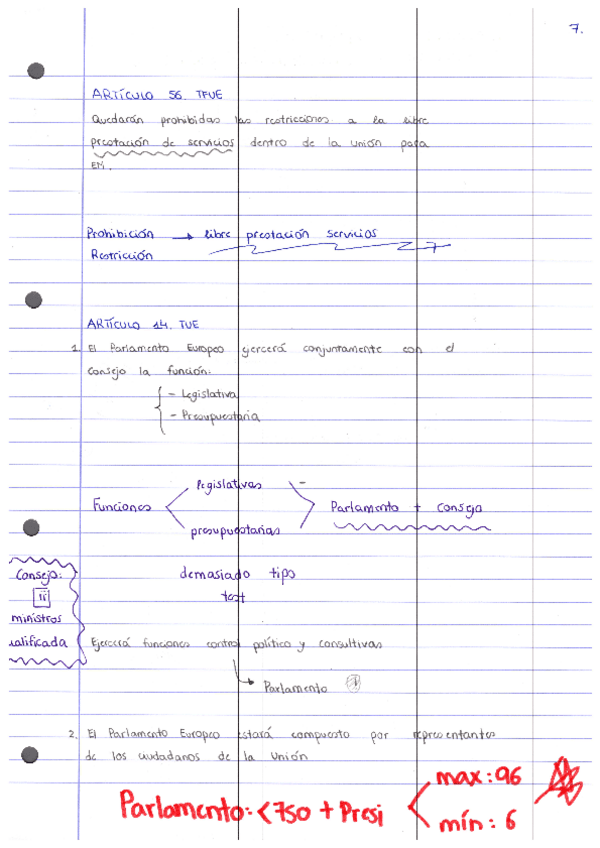 7.
ARTÍCULO 56. TFUE
Quedarán prohibidas las restricciones a la libre
prestación de servicios dentro de la unión para
EM.
Prohibición → libre prestación servicios
Restricción
ARTÍCULO 14. TUE
1. El Parlamento Europeo ejercerá conjuntamente con el
Consejo la función:
- Legislativa
- Presupuestaria
legislativas
Funciones Parlamento + Consejo
presupuestarias
Consejo: demasiado tipo
test
ministros
ualificada
Ejercerá funciones control político y consultivas
Parlamento
2. El Parlamento Europeo estará compuesto por representantes
de los ciudadanos de la Unión
max: 96
Parlamento: <750 + Presi
mín: 6